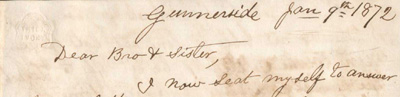 Gunnerside Jan 9th 1872
Dear Bro & Sister,
I now seat myself to answer